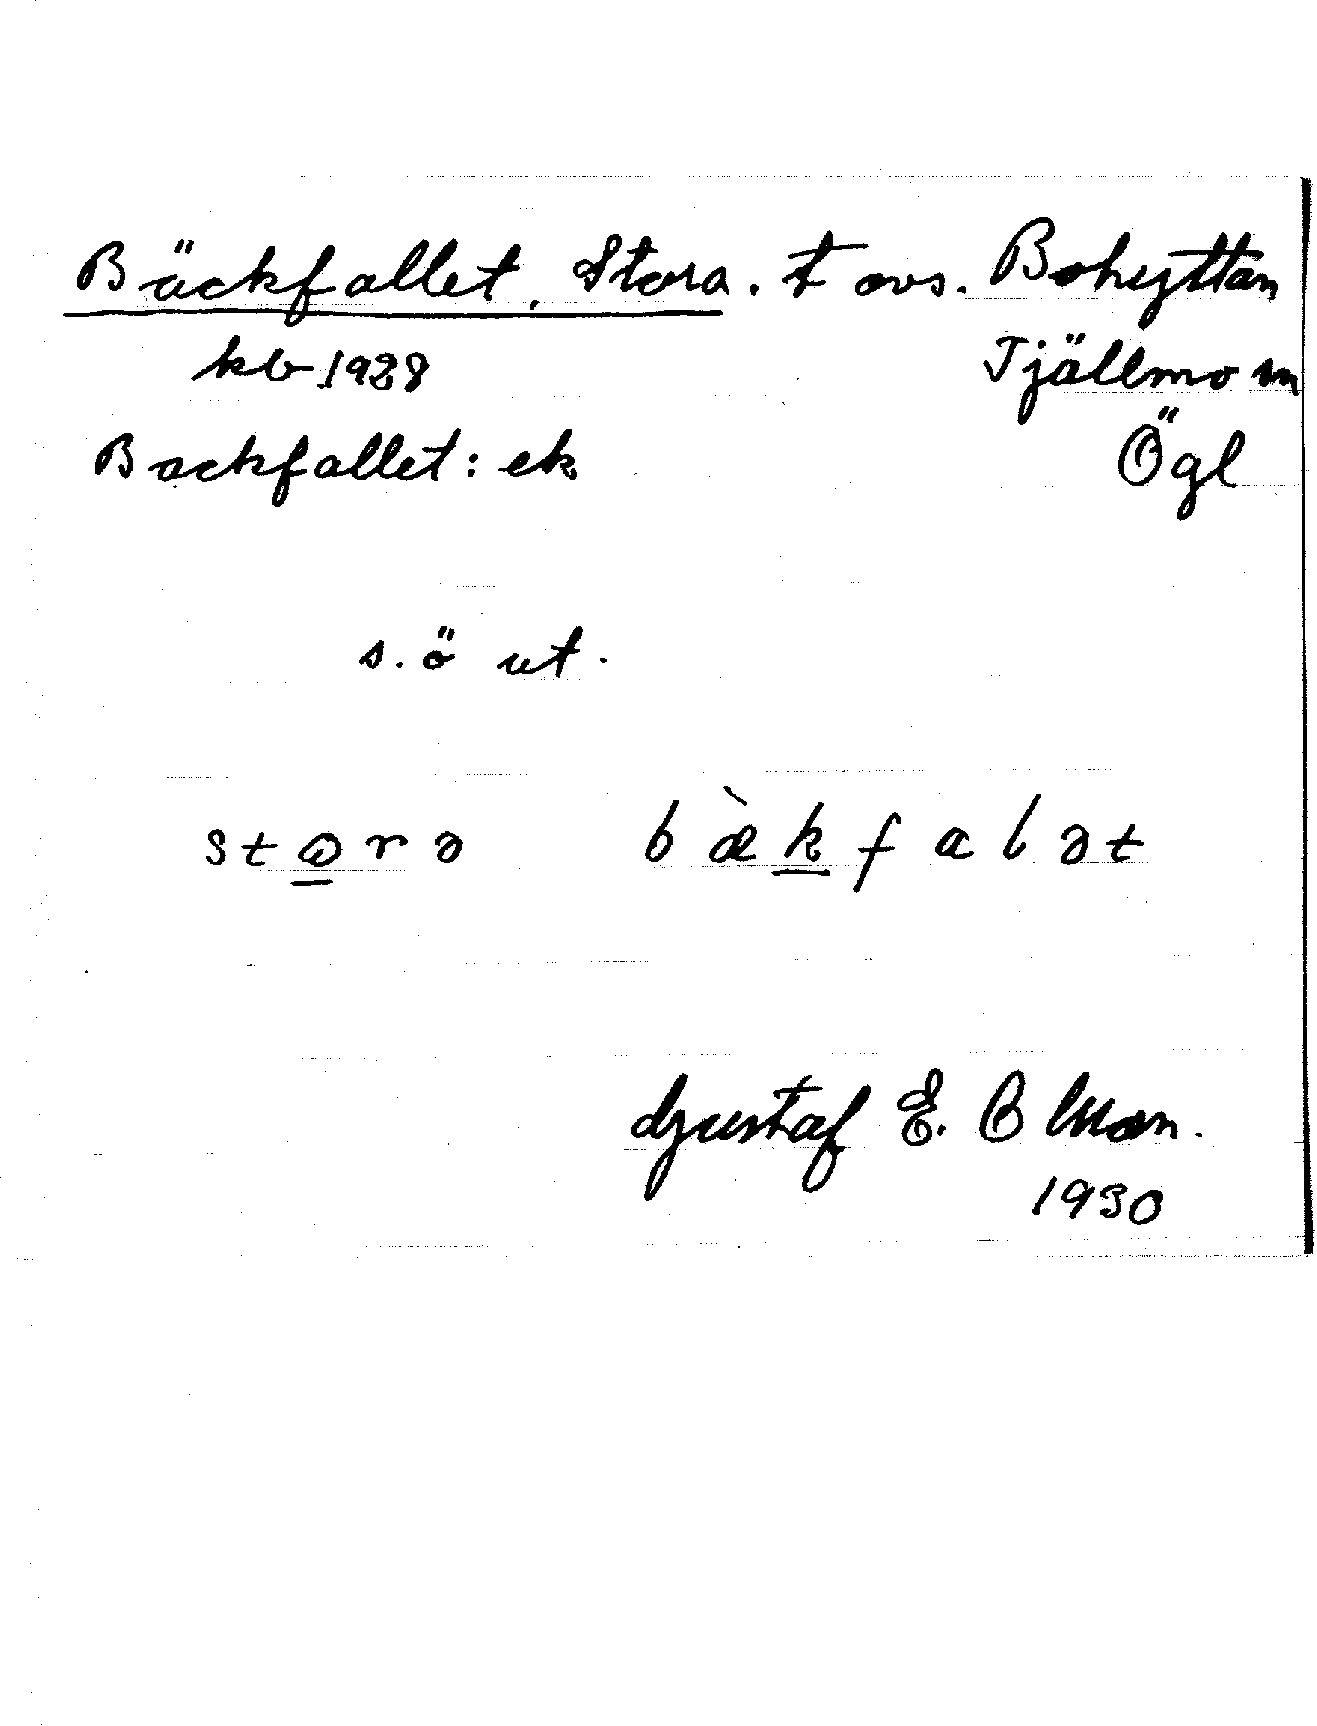 Bäckfallet, Stora. t avs. Bohyttan
kb 1928 Tjällmo sn
Backfallet: ek Ögl
s. ö ut.
storə bæ̀kfalət
Gustaf E. Blman.
1930